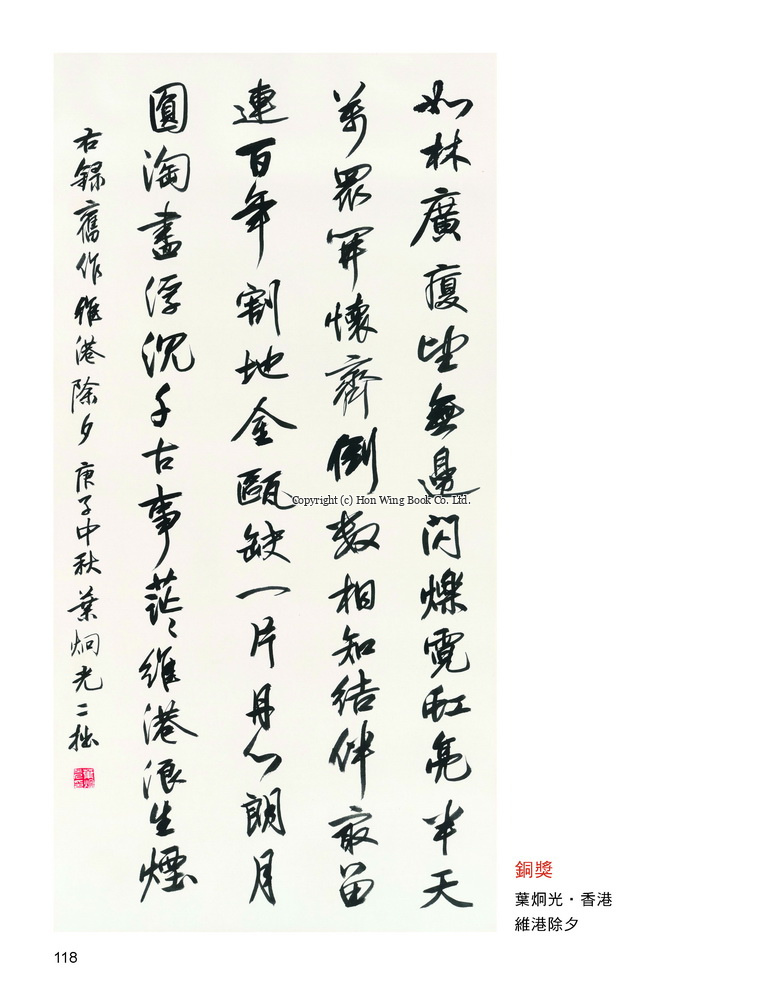 如林廣廈望無邊閃爍霓虹亮半天
萬眾開懷齊倒數相知結伴最留
連百年割地金甌缺一片丹心朗月
圓淘盡浮沉千古事茫〻維港浪生煙
右錄舊作維港除夕 庚子中秋 葉炯光〻拙
Copyright (c) Hon Wing Book Co. Ltd.
銅獎
葉炯光・香港
維港除夕
118